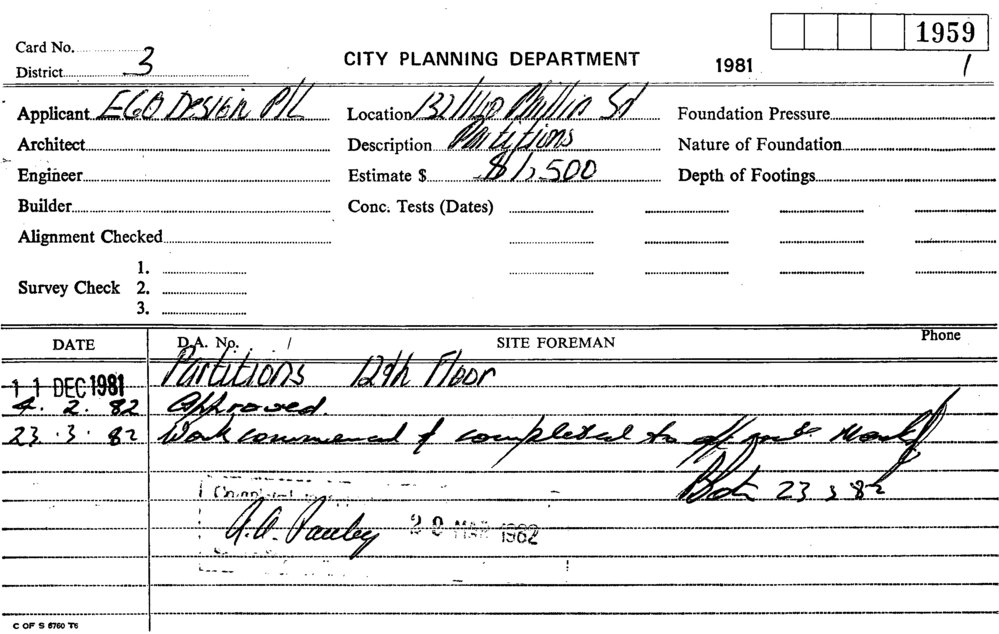 1959
Card No. CITY PLANNING DEPARTMENT 1981 1
District 3
Applicant EGO DESIGN P/L Location 132/140 Phillip St Foundation Pressure
Architect Description Partitions Nature of Foundation
Engineer Estimate $ $1,500 Depth of Footings
Builder Conc. Tests (Dates)
Alignment Checked
1.
Survey Check 2.
3.
DATE D.A. No. / SITE FOREMAN Phone
11 DEC 1981 Partitions 12th Floor
4. 2. 82 Approved.
23. 3. 82 Work commenced & completed to
23 3 82
A.A. Pauley MAR 1982
C OF S 6760 T6